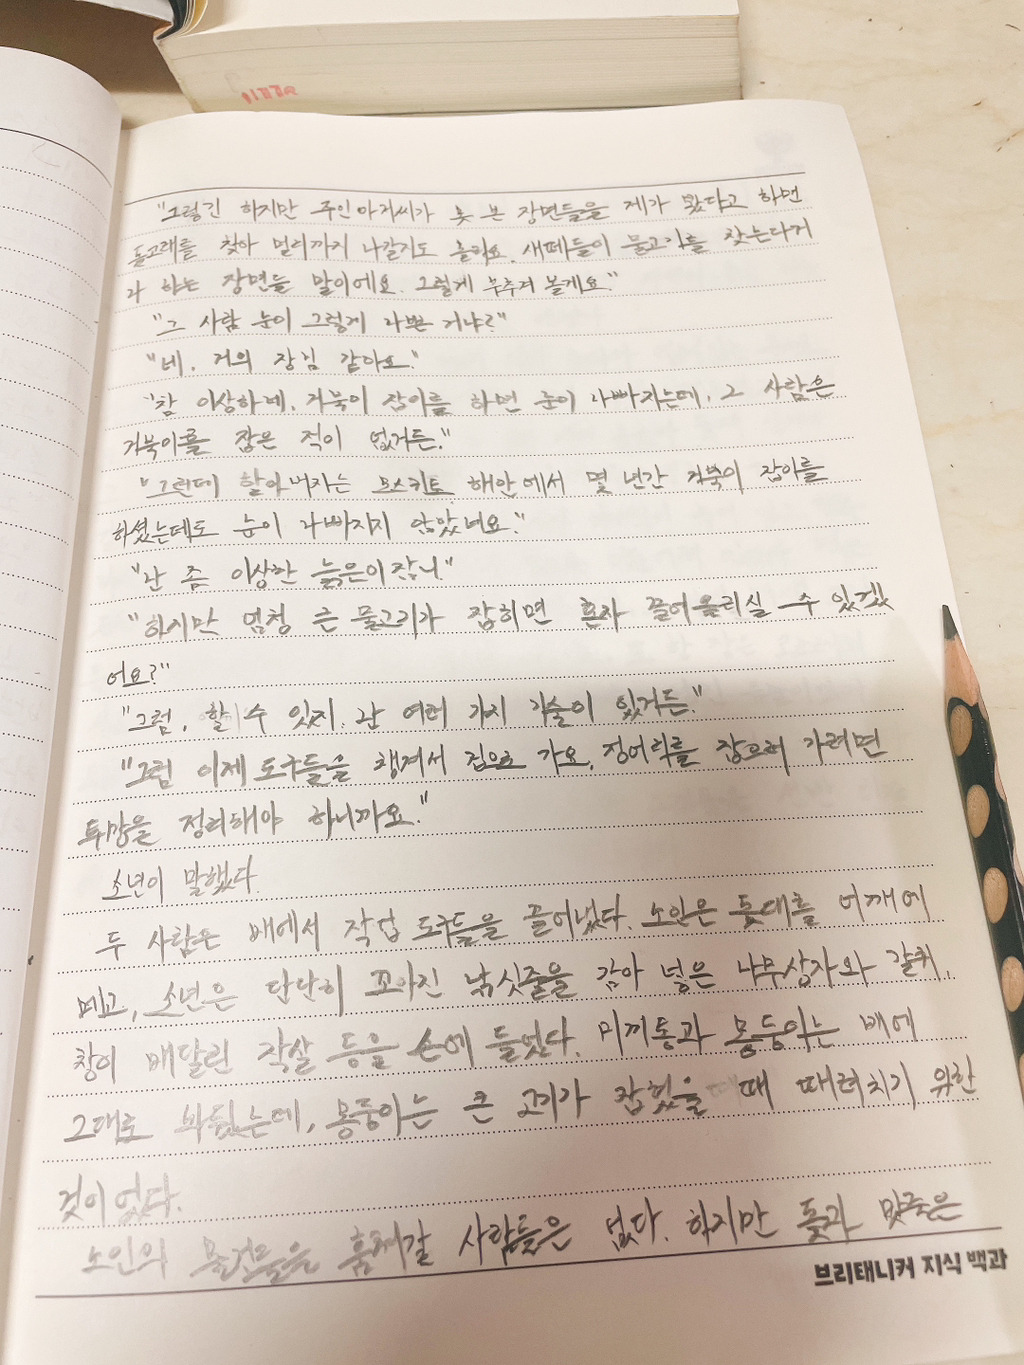 "그렇긴 하지만 주인아저씨가 못 본 장면들을 제가 봤다고 하면
돌고래를 찾아 멀리까지 나갈지도 몰라요. 새떼들이 물고기를 찾는다거
나 하는 장면들 말이에요. 그렇게 부추겨 볼게요."
"그 사람 눈이 그렇게 나쁜 거냐?"
"네. 거의 장님 같아요."
"참 이상하네. 거북이 잡이를 하면 눈이 나빠지는데, 그 사람은
거북이를 잡은 적이 없거든."
"그런데 할아버지는 모스키토 해안에서 몇 년간 거북이 잡이를
하셨는데도 눈이 나빠지지 않았네요."
"난 좀 이상한 늙은이잖니."
"하지만 엄청 큰 물고기가 잡히면 혼자 끌어올리실 수 있겠
어요?"
"그럼, 할 수 있지. 난 여러 가지 기술이 있거든."
"그럼 이제 도구들을 챙겨서 집으로 가요. 정어리를 잡으러 가려면
투망을 정리해야 하니까요."
소년이 말했다.
두 사람은 배에서 작업 도구들을 끌어냈다. 노인은 돛대를 어깨에
메고, 소년은 단단히 꼬아진 낚싯줄을 감아 넣은 나무상자와 갈퀴,
창이 매달린 작살 등을 손에 들었다. 미끼통과 몽둥이는 배에
그대로 놔뒀는데, 몽둥이는 큰 고기가 잡혔을 때 때려치기 위한
것이었다.
노인의 물건들을 훔쳐갈 사람들은 없다. 하지만 돛과 맞죽은
브리태니커 지식 백과